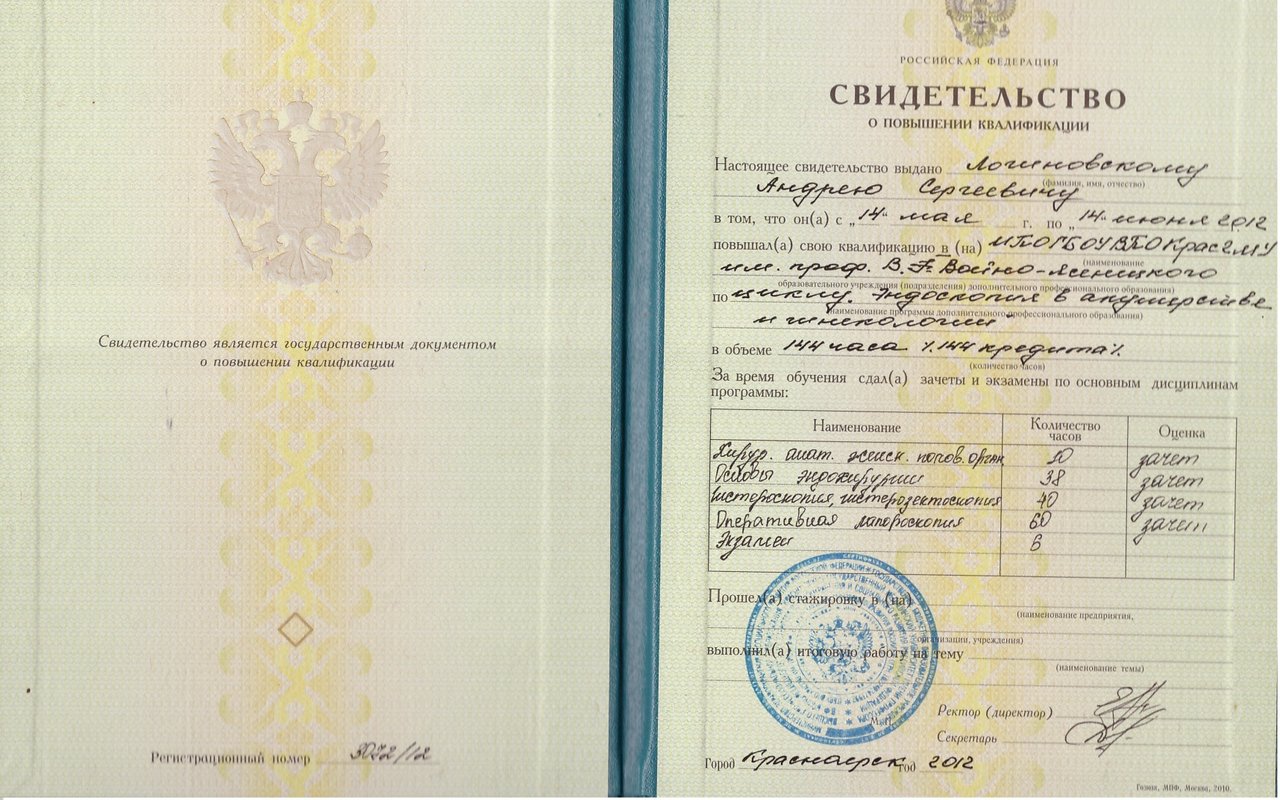 Свидетельство является государственным документом
о повышении квалификации
Регистрационный номер 3072/12
РОССИЙСКАЯ ФЕДЕРАЦИЯ
СВИДЕТЕЛЬСТВО
О ПОВЫШЕНИИ КВАЛИФИКАЦИИ
Настоящее свидетельство выдано Логиновскому
(фамилия, имя, отчество)
Андрею Сергеевичу
в том, что он(а) с „14“ мая г. по „14“ июня 2012
повышал(а) свою квалификацию в (на) ИПО ГБОУ ВПО КрасГМУ
(наименование
им. проф. В.Ф. Войно-Ясенецкого
образовательного учреждения (подразделения) дополнительного профессионального образования)
по циклу „Эндоскопия в акушерстве
(наименование программы дополнительного профессионального образования)
и гинекологии“
в объеме 144 часа \.144 кредита\.
(количество часов)
За время обучения сдал(а) зачеты и экзамены по основным дисциплинам
программы:
Наименование Количество часов Оценка
Хирур. анат. женск. полов. орган зачет
Основы эндохирургии 38 зачет
гистероскопия, гистерозектоскопия 40 зачет
Оперативная лапороскопия 60 зачет
Экзамен 6
Прошел(а) стажировку в (на)
(наименование предприятия,
организации, учреждения)
выполнил(а) итоговую работу на тему
(наименование темы)
М.П.
Ректор (директор)
Секретарь
Город Красноярск год 2012
Гознак, МПФ, Москва, 2010.